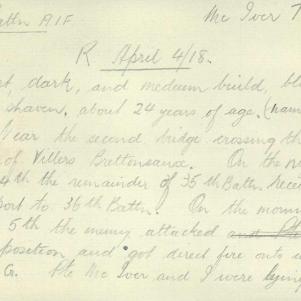 Battn AIF Mc Iver T
R April 4/18.
st, dark, and medium build, bl
shaven, about 24 years of age. (nam
Near the second bridge crossing th
of Villers Brettonsaux. On the ni
4th the remainder of 35th Battn. rece
port to 36th Battn. On the morn
5th the enemy attacked and
position and got direct fire onto
G. Pte Mc Iver and I were lying